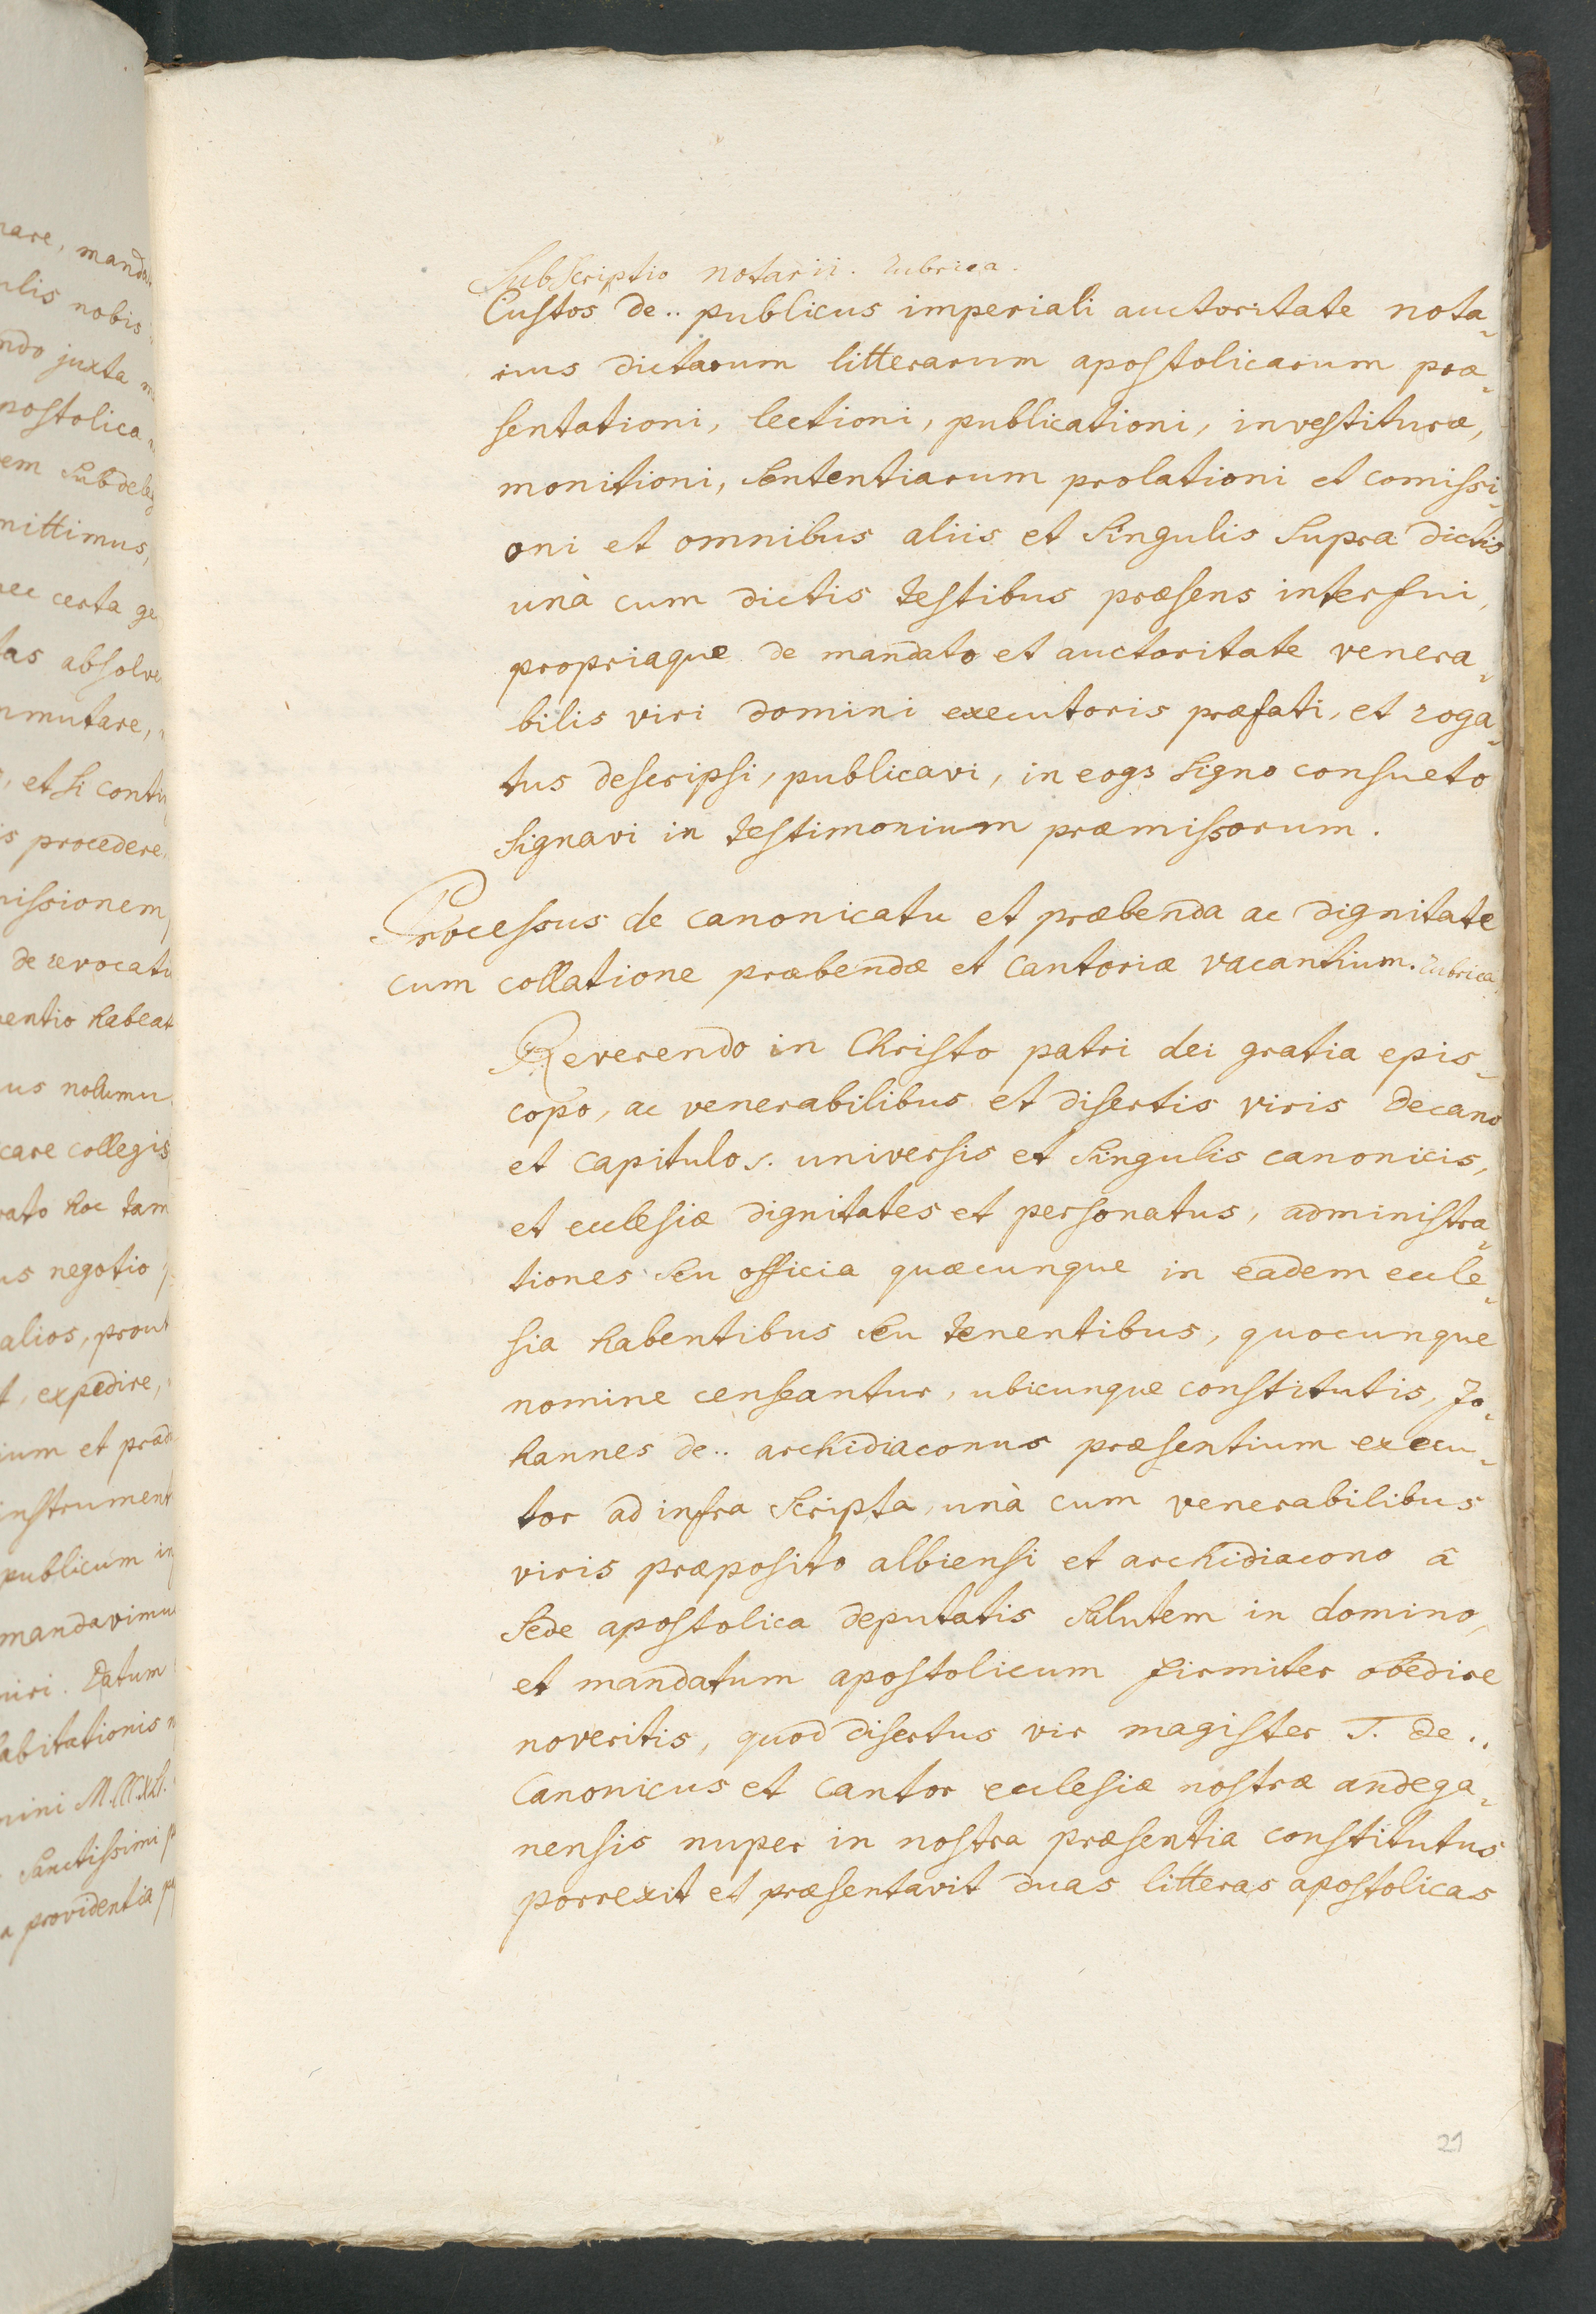 nare, mand
ulis nobis
ndo juxta
postolica
em Subdele
mittimus,
nec certa ge
tas absolve
mmutare,
, et si conti
is procedere
missionem
de revocatu
ventio habeat
us nolumu
care collegis
rato hoc tam
us negotio
alios, prout
t, expedire,
ium et præd
instrument
publicum in
mandavimu
niri. Datum
habitationis
mini
Sanctissimi
a providentia
Subscriptio notarii. rubrica.
Custos de.. publicus imperiali auctoritate nota-
rius dictarum litterarum apostolicarum præ-
sentationi, lectioni, publicationi, investituræ,
monitioni, sententiarum prolationi et comissi-
oni et omnibus aliis et singulis supra dictis
unà cum dictis testibus præsens interfui,
propriaque de mandato et auctoritate venera-
bilis viri domini executoris præfati, et roga-
tus descripsi, publicavi, in eogȝ signo consueto
signavi in testimonium præmissorum.
Processus de canonicatu et præbenda ac dignitate
cum collatione præbendæ et cantoriæ vacantium. rubrica.
Reverendo in Christo patri dei gratia epis-
copo, ac venerabilibus et disertis viris decano
et capitulo s. universis et singulis canonicis,
et ecclesiæ dignitates et personatus, administra-
tiones seu officia quæcunque in eadem eccle-
sia habentibus seu tenentibus, quocunque
nomine censeantur, ubicunque constitutis, Jo-
hannes de.. archidiaconus præsentium execu-
tor ad infra scripta, unà cum venerabilibus
viris præposito albiensi et archidiacono â
Sede apostolica deputatis salutem in domino,
et mandatum apostolicum firmiter obedire
noveritis, quod disertus vir magister T. de..
Canonicus et cantor ecclesiæ nostræ andega-
nensis nuper in nostra præsentia constitutus
porrexit et præsentavit duas litteras apostolicas
29